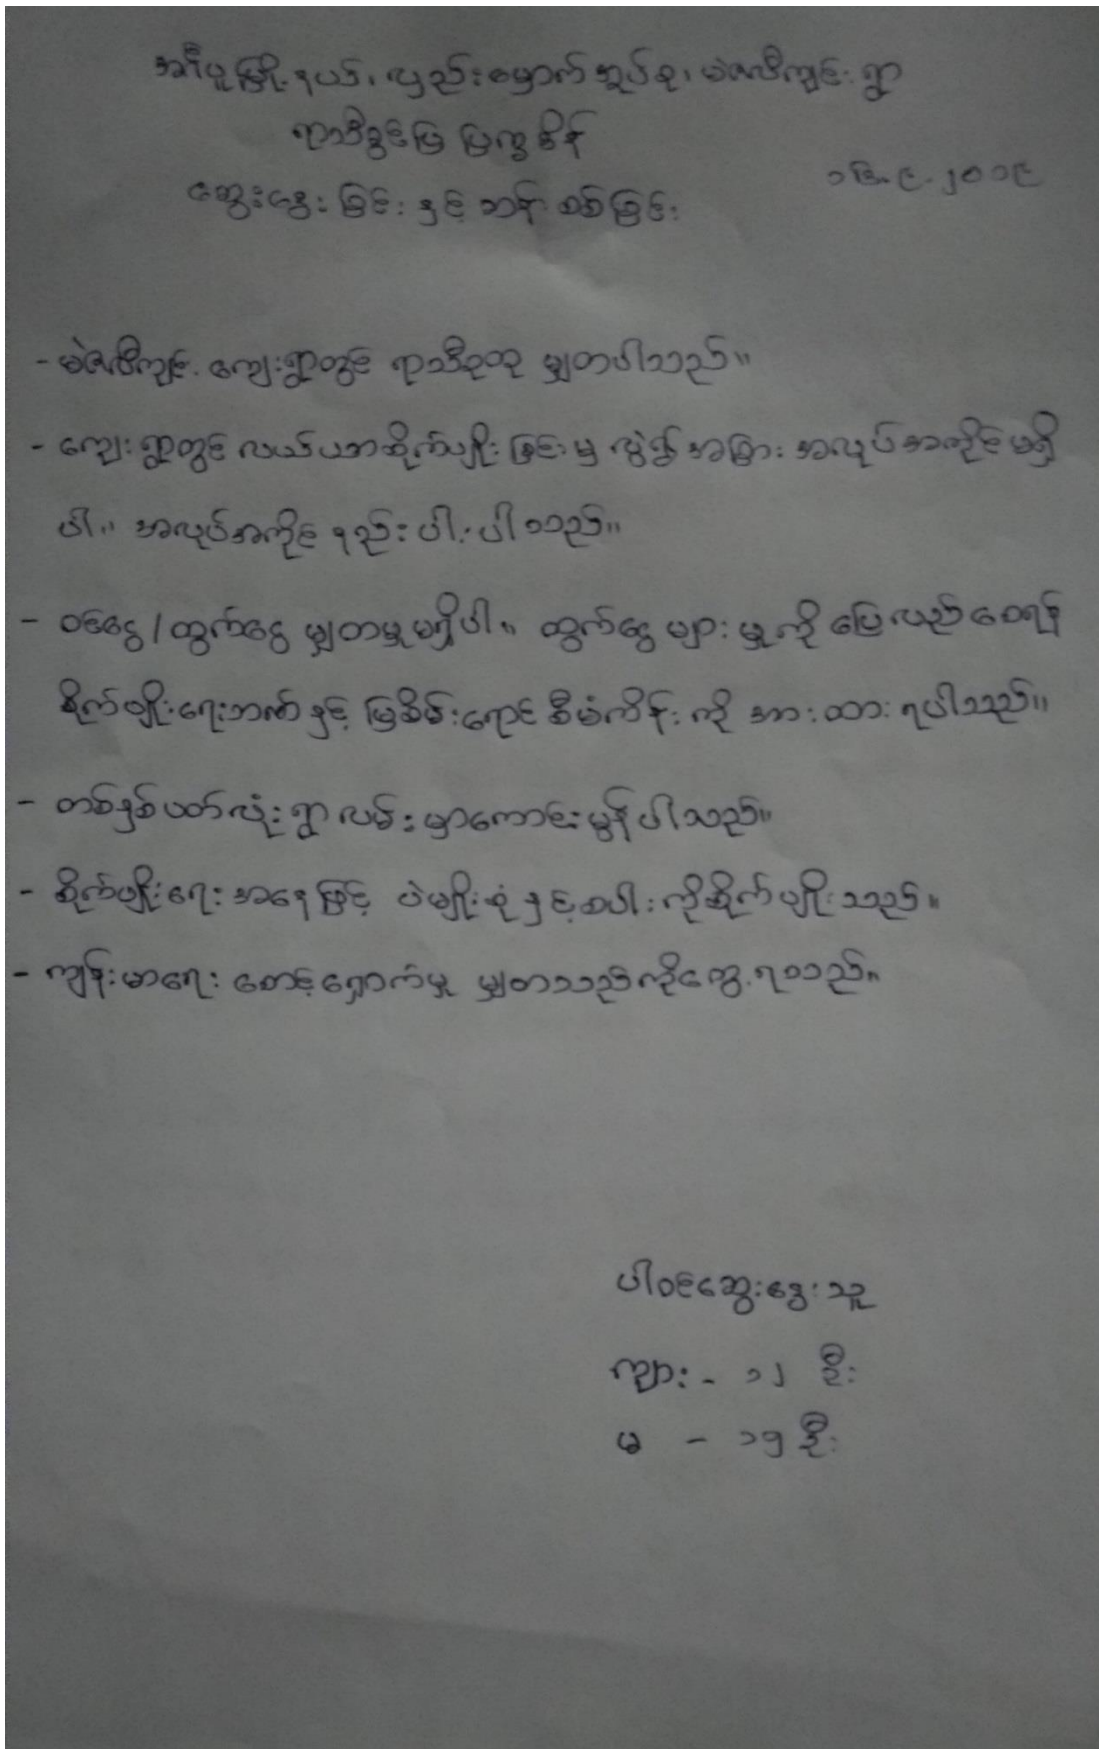 အင်္ဂပူမြို့နယ်၊ လှည်းမှောက်အုပ်စု၊ မဲဇလီကျွင်းရွာ
ရာသီခွင်ပြ ပြက္ခဒိန်
၁၆.၉.၂၀၁၉
ဆွေးနွေးခြင်း နှင့် ဘန်းစစ်ခြင်း
- မဲဇလီကျွင်းကျေးရွာတွင် ရာသီဥတု မျှတပါသည်။
- ကျေးရွာတွင် လယ်ယာစိုက်ပျိုးခြင်းမှ လွဲ၍ အခြားအလုပ်အကိုင်မရှိ
ပါ။ အလုပ်အကိုင် ရှည်းပါးပါသည်။
- ဝင်ငွေ/ထွက်ငွေ မျှတမှုမရှိပါ။ ထွက်ငွေများမှုကို ပြေလည်စေရန်
စိုက်ပျိုးရေးဘဏ်နှင့် မြစိမ်းရောင်စီမံကိန်းကို အားထားရပါသည်။
- တစ်နှစ်ပတ်လုံး ရွာလမ်းမှာကောင်းမွန်ပါသည်။
- စိုက်ပျိုးရေးအနေဖြင့် ပဲမျိုးစုံနှင့်စပါးကိုစိုက်ပျိုးသည်။
- ကျန်းမာရေး စောင့်ရှောက်မှု မျှတသည်ကိုတွေ့ရသည်။
ပါဝင်ဆွေးနွေးသူ
ကျား - ၁၂ ဦး
မ - ၁၅ ဦး